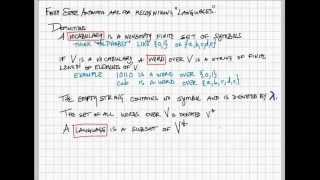 FINITE STATE AUTOMATA ARE FOR RECOGNIZING "LANGUAGES".
DEFINITIONS
A VOCABULARY IS A NONEMPTY FINITE SET OF SYMBOLS
THINK "ALPHABET" LIKE {0,1} OR {a,b,c,d}
IF V IS A VOCABULARY A WORD OVER V IS A STRING OF FINITE
LENGTH OF ELEMENTS OF V
EXAMPLE 1010 IS A WORD OVER {0,1}
cab IS A WORD OVER {a,b,c,d}
THE EMPTY STRING CONTAINS NO SYMBOLS AND IS DENOTED BY λ.
THE SET OF ALL WORDS OVER V IS DENOTED V*
A LANGUAGE IS A SUBSET OF V*.